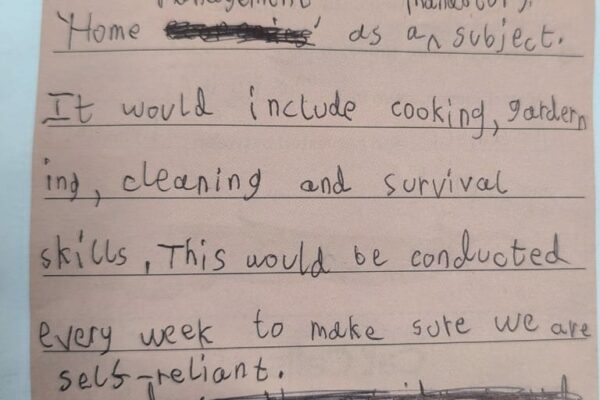 Management mandatory
'Home ' as a subject.
It would include cooking, gardern
ing, cleaning and survival
skills, This would be conducted
every week to make sure we are
self-reliant.